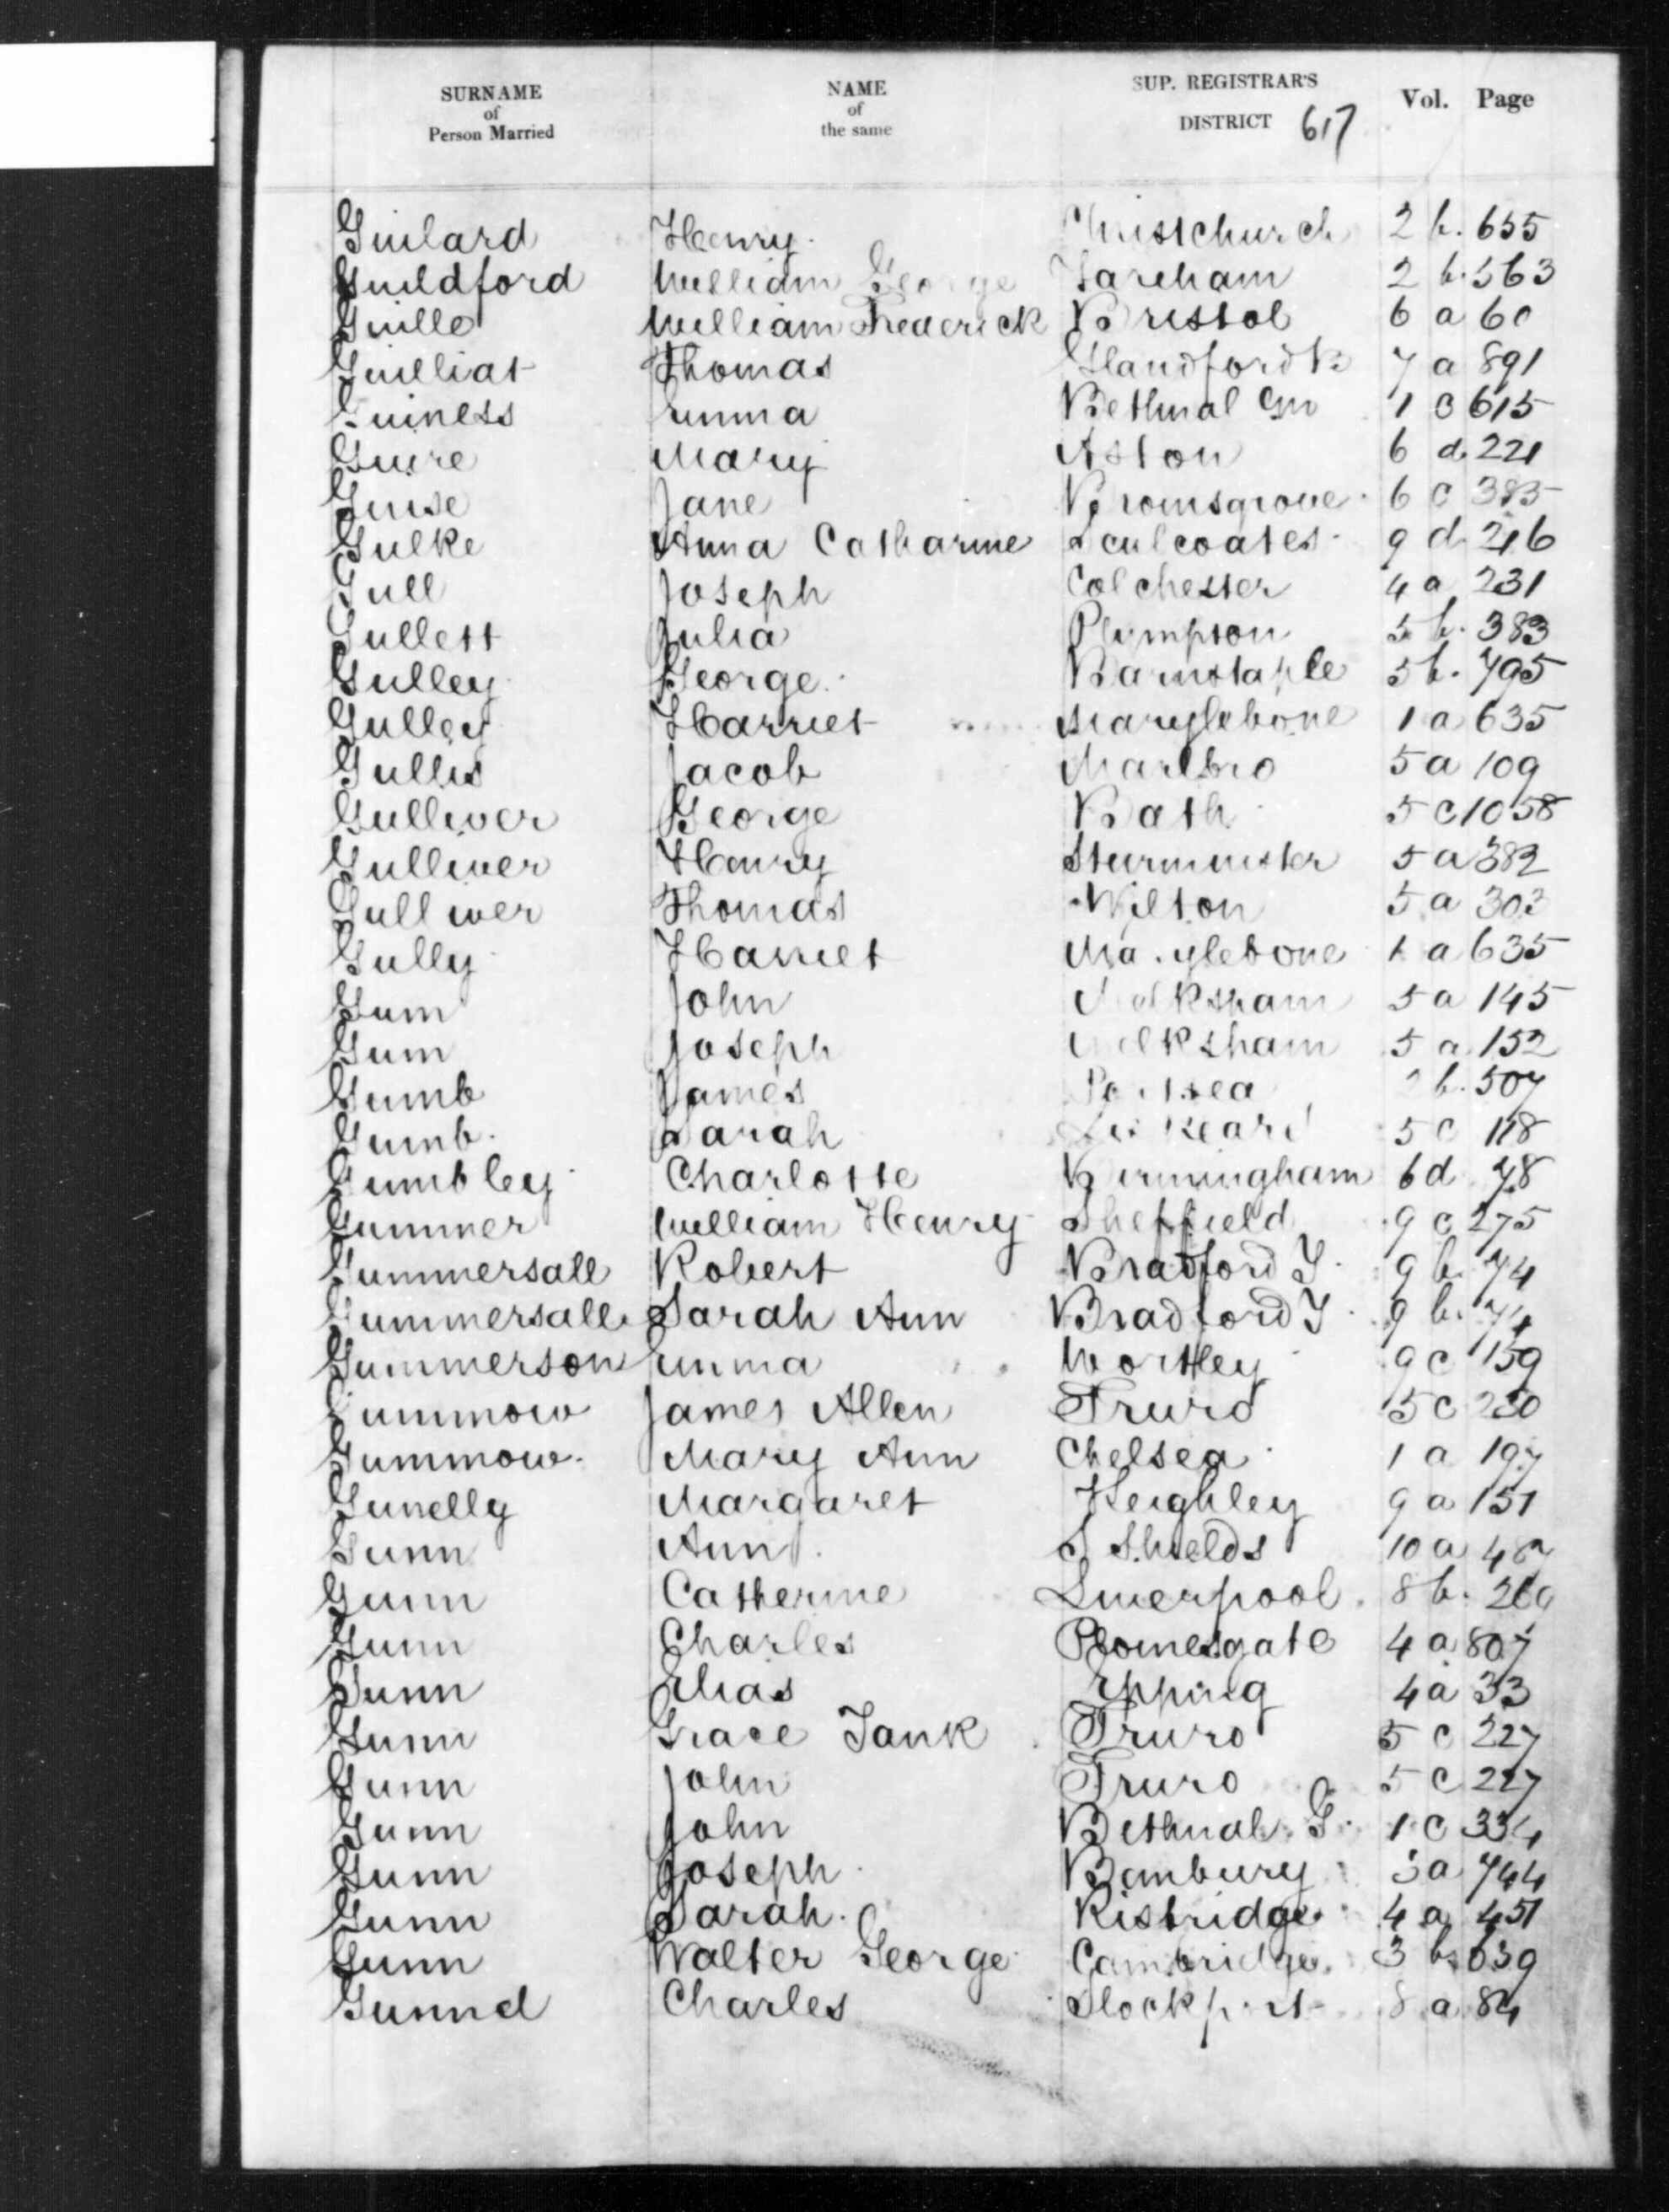 SURNAME of Person Married NAME of the same SUP. REGISTRAR'S DISTRICT 617 Vol. Page
Guilard Henry Christchurch 2 b. 655
Guildford William George Fareham 2 b. 563
Guille William Frederick Bristol 6 a 60
Guilliat Thomas Glandford B 7 a 891
Guiness Emma Bethnal Gn 1 c 615
Guire Mary Aston 6 d 221
Guise Jane Bromsgrove 6 c 385
Gulke Anna Catharine Sculcoates 9 d 216
Gull Joseph Colchester 4 a 231
Gullett Julia Plympton 5 b. 383
Gulley George Barnstaple 5 b. 795
Gulley Harriet Marylebone 1 a 635
Gullis Jacob Marlbro 5 a 109
Gulliver George Bath 5 c 1058
Gulliver Henry Sturminster 5 a 382
Gulliver Thomas Wilton 5 a 303
Gully Harriet Marylebone 1 a 635
Gum John Melksham 5 a 145
Gum Joseph Melksham 5 a 152
Gumb James Portsea 2 b. 507
Gumb Sarah Liskeard 5 c 118
Gumbley Charlotte Birmingham 6 d 78
Gummer William Henry Sheffield 9 c 275
Gummersall Robert Bradford Y 9 b. 74
Gummersall Sarah Ann Bradford Y 9 b. 74
Gummerson Emma Wortley 9 c 159
Gummow James Allen Truro 5 c 230
Gummow Mary Ann Chelsea 1 a 197
Gunelly Margaret Keighley 9 a 151
Gunn Ann S. Shields 10 a 487
Gunn Catherine Liverpool 8 b.
Gunn Charles Plomesgate 4 a 807
Gunn Elias Epping 4 a 33
Gunn Grace Tank Truro 5 c 227
Gunn John Truro 5 c 227
Gunn John Bethnal G 1 c 334
Gunn Joseph Banbury 3 a 744
Gunn Sarah Risbridge 4 a 451
Gunn Walter George Cambridge 3 b 639
Gunnd Charles Stockport 8 a 84